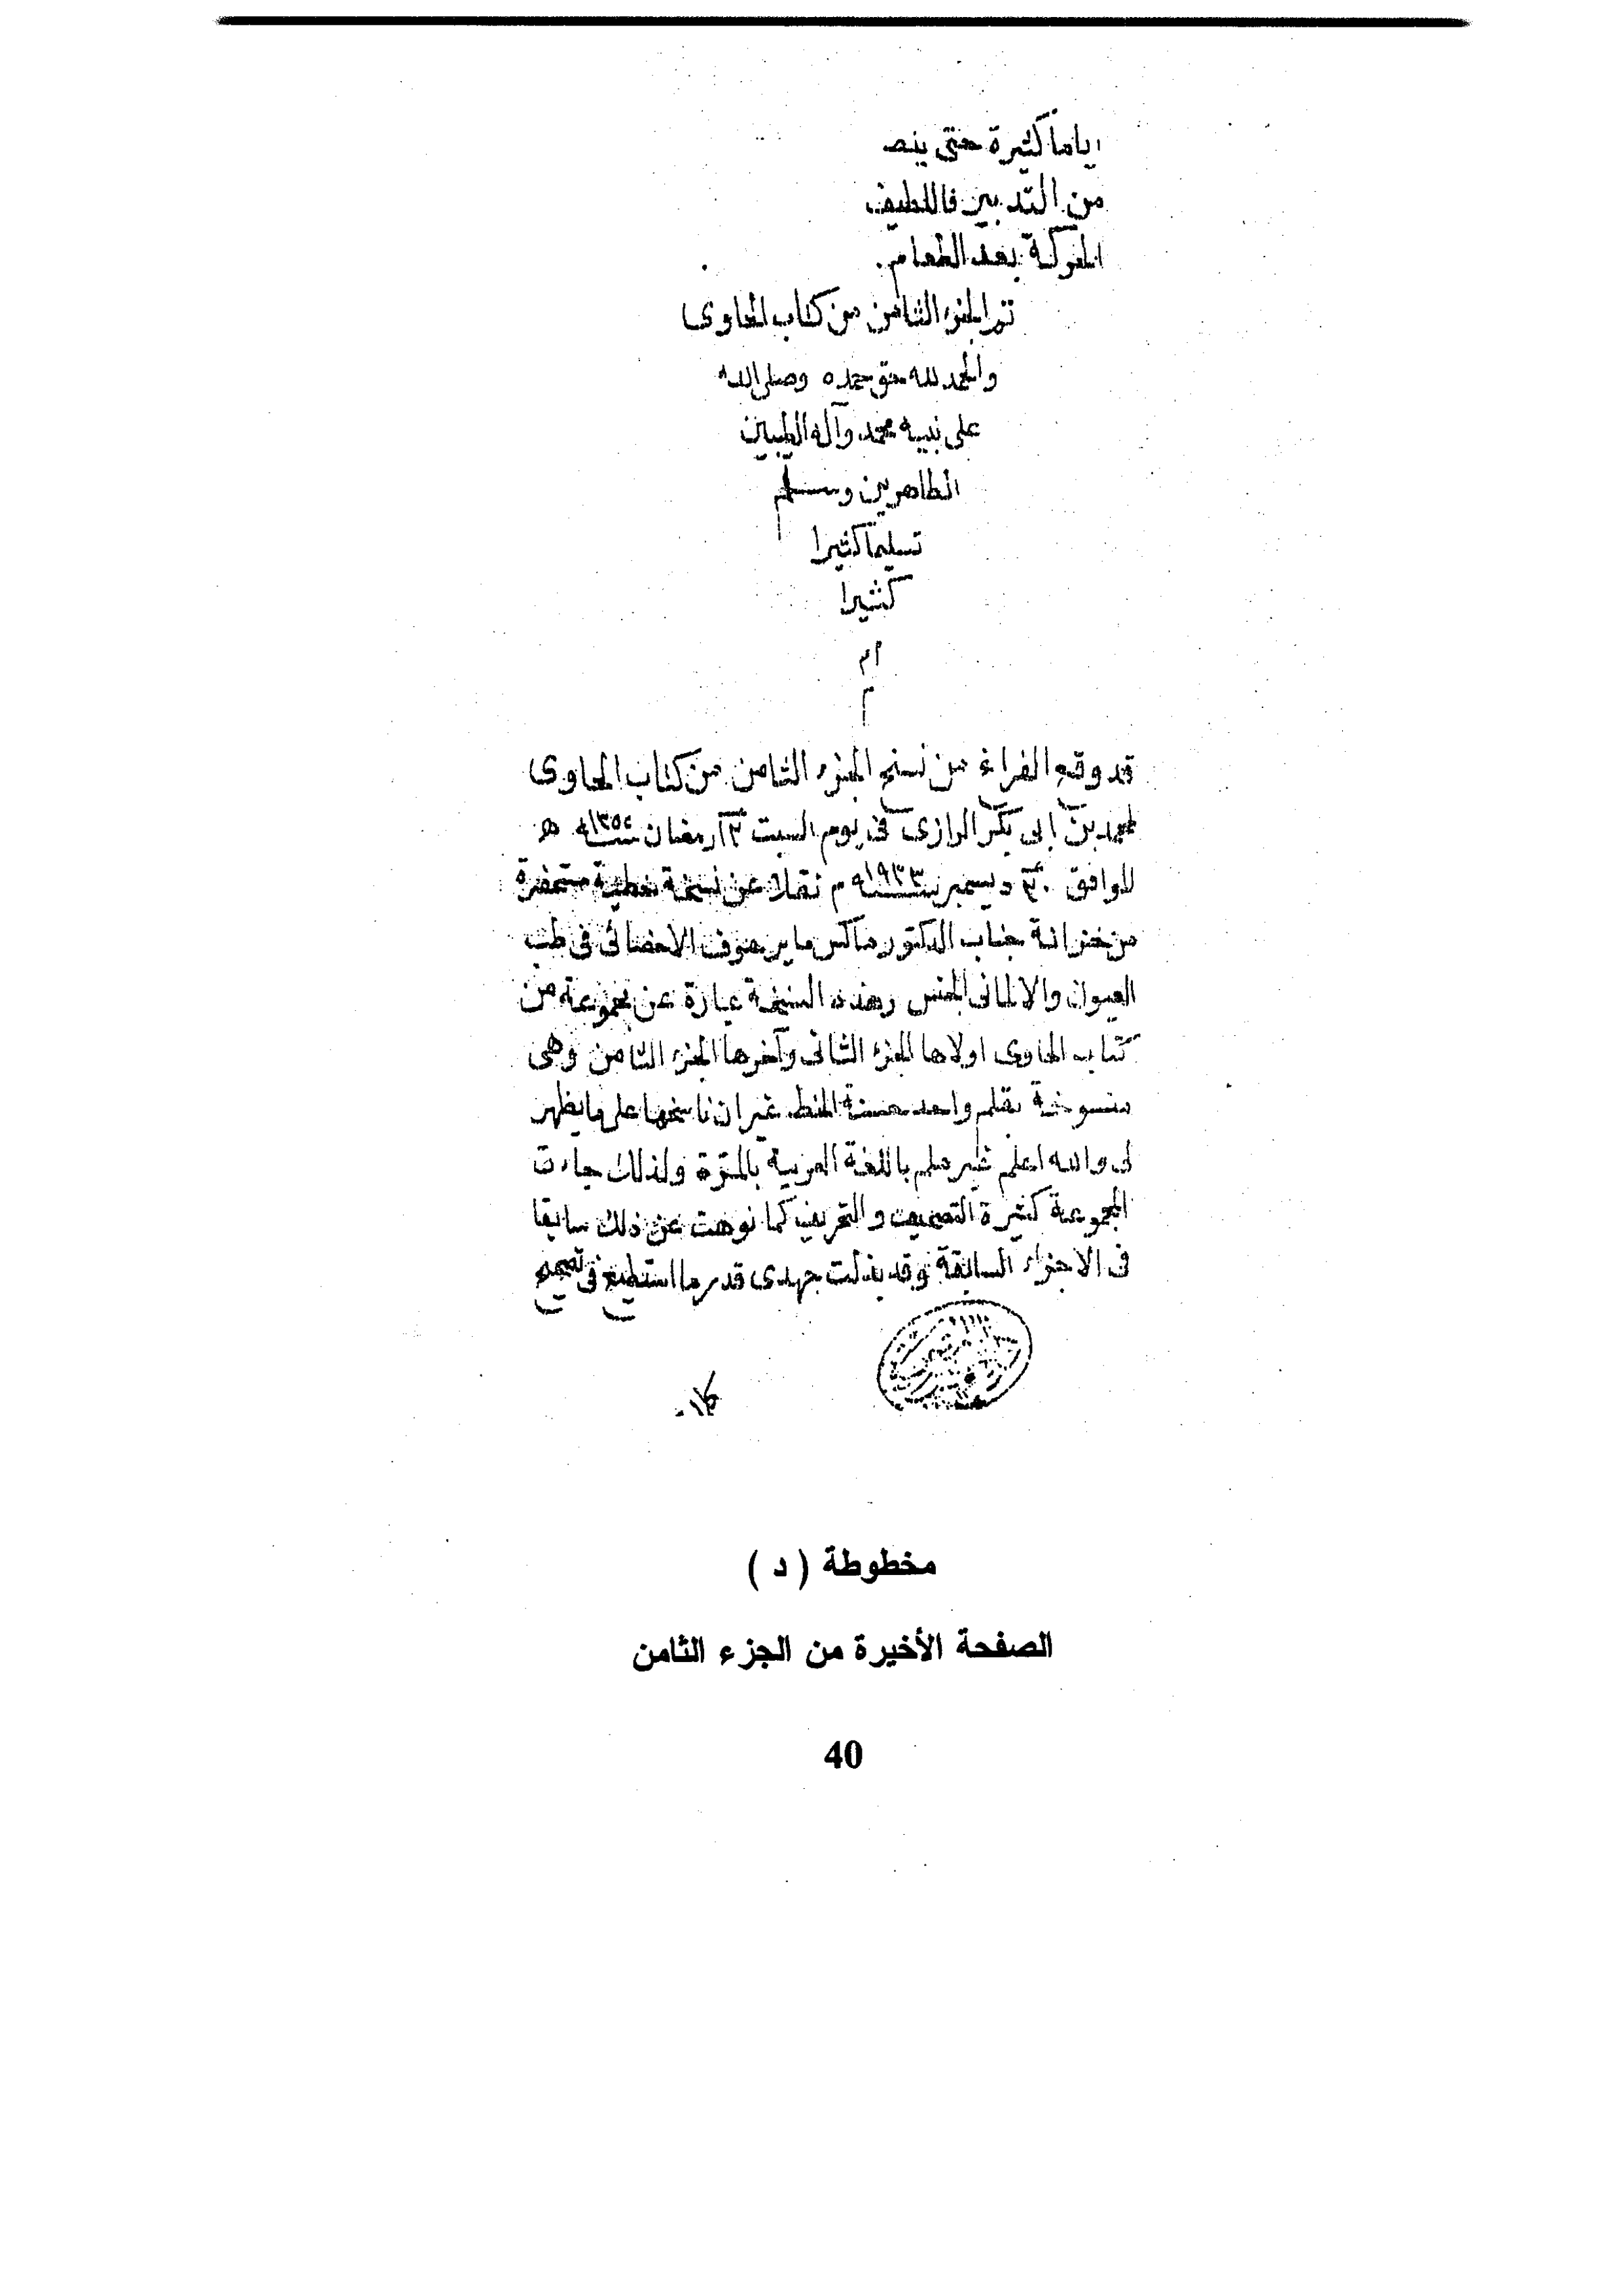 اياما كثيرة حتى ينص
من التدبير فاللطيف
الحركة بعد الطعام.
تم الجزء الثامن من كتاب الحاوى
والحمد لله حق حمده وصلى الله
على نبيه محمد وآله الطيبين
الطاهرين وسلم
تسليما كثيرا
كثيرا
م
قد وقع الفراغ من نسخ الجزء الثامن من كتاب الحاوى
لمحمد بن ابى بكر الرازى فى يوم السبت ١٣ رمضان سنة ١٣٥٢ ه
الموافق ٣٠ ديسمبر سنة ١٩٣٣ م نقلا عن نسخة خطية مستحضرة
من خزانة جناب الدكتور ماكس مايرهوف الاخصائى فى طب
العيون والالمانى الجنس وهذه النسخة عبارة عن مجموعة من
كتاب الحاوى اولاها الجزء الثانى وآخرها الجزء الثامن وهى
منسوخة بقلم واحد حسنة الخط غير ان ناسخها على ما يظهر
لى والله اعلم غير ملم باللغة العربية بالمرة ولذلك جاءت
المجموعة كثيرة التصحيف والتحريف كما نوهت عن ذلك سابقا
فى الاجزاء السابقة وقد بذلت جهدى قدر ما استطيع فى تصحيح
مخطوطة ( د )
الصفحة الأخيرة من الجزء الثامن
40